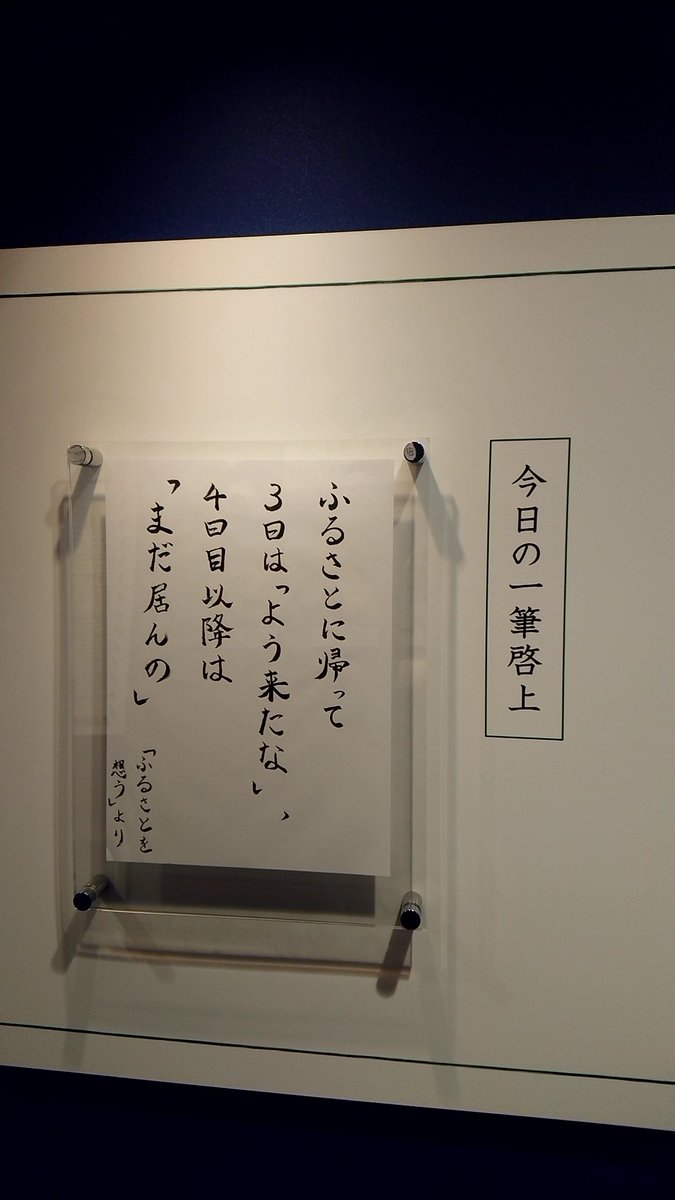 今日の一筆啓上
ふるさとに帰って
3日は「よう来たな」、
4日目以降は
「まだ居んの」
「ふるさとを
想う」より